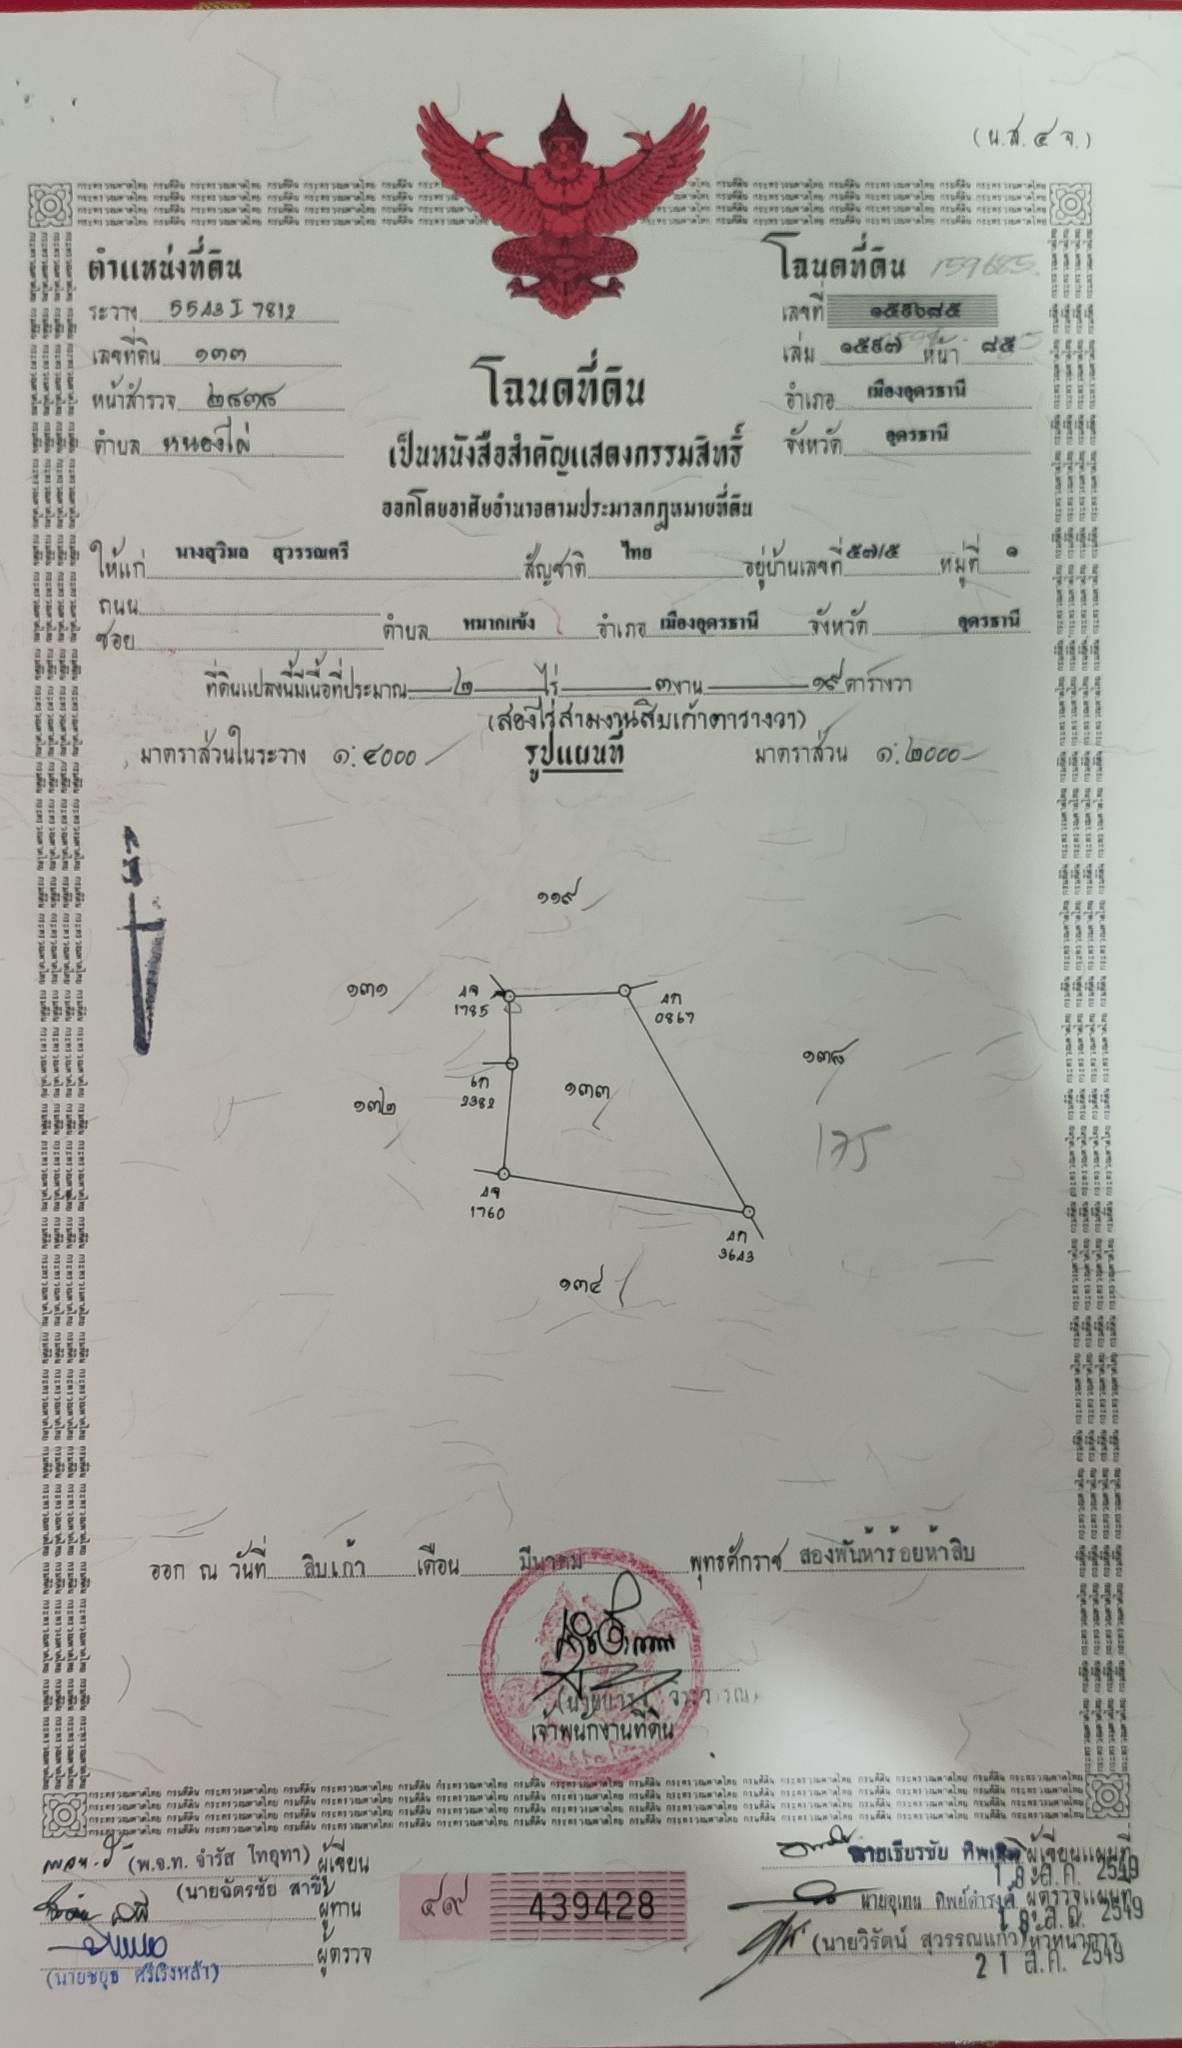 (น.ส.๔ จ.)
ตำแหน่งที่ดิน
ระวาง 5543 I 7812
เลขที่ดิน ๑๓๓
หน้าสำรวจ ๒๘๓๘
ตำบล หนองไผ่
โฉนดที่ดิน 159685
เลขที่ ๑๕๙๖๘๕
เล่ม ๑๕๙๗ หน้า ๘๕
อำเภอ เมืองอุดรธานี
จังหวัด อุดรธานี
โฉนดที่ดิน
เป็นหนังสือสำคัญแสดงกรรมสิทธิ์
ออกโดยอาศัยอำนาจตามประมวลกฎหมายที่ดิน
ให้แก่ นางสุวิมล สุวรรณศรี สัญชาติ ไทย อยู่บ้านเลขที่ ๕๗/๕ หมู่ที่ ๑
ถนน
ซอย ตำบล หมากแข้ง อำเภอ เมืองอุดรธานี จังหวัด อุดรธานี
ที่ดินแปลงนี้มีเนื้อที่ประมาณ ๒ ไร่ ๓ งาน ๑๙ ตารางวา
(สองไร่สามงานสิบเก้าตารางวา)
มาตราส่วนในระวาง ๑:๔๐๐๐ รูปแผนที่ มาตราส่วน ๑:๒๐๐๐
๑๑๙
๑๓๑
1785
0867
๑๓๘
2382
๑๓๓
๑๓๒
175
1760
3643
๑๓๔
ออก ณ วันที่ สิบเก้า เดือน มีนาคม พุทธศักราช สองพันห้าร้อยห้าสิบ
เจ้าพนักงานที่ดิน
(พ.จ.ท. จำรัส ไทอุทา) ผู้เขียน
(นายฉัตรชัย สาขี)
ผู้ทาน
ผู้ตรวจ
(นายชยุธ ศรีเริงหล้า)
๔๙ 439428
นายเธียรชัย ผู้เขียนแผนที่
18 ส.ค. 2549
นายอุเทน ทิพย์ดำรงค์ ผู้ตรวจแผนที่
18 ส.ค. 2549
(นายวิรัตน์ สุวรรณแก้ว)
21 ส.ค. 2549